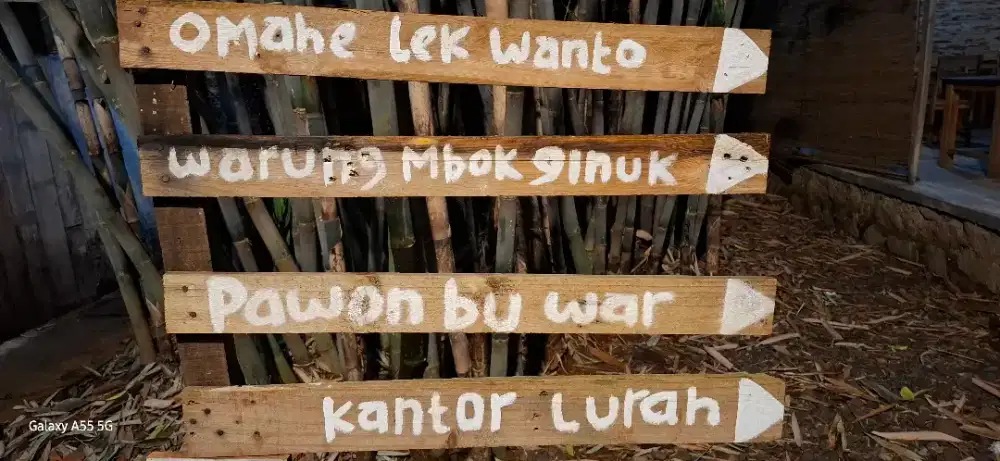 omahe Lek wanto
warung Mbok ginuk
Pawon bu war
kantor Lurah
Galaxy A55 5G